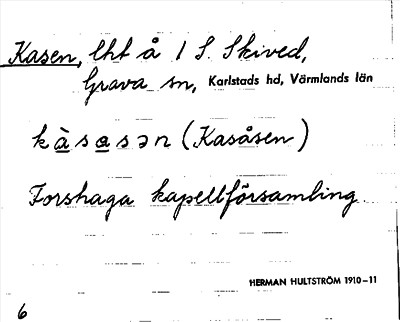 Kasen, lht å 1 S. Skived,
Grava sn, Karlstads hd, Värmlands län
kàsasən (Kasåsen)
Forshaga kapellförsamling
HERMAN HULTSTRÖM 1910-11
6